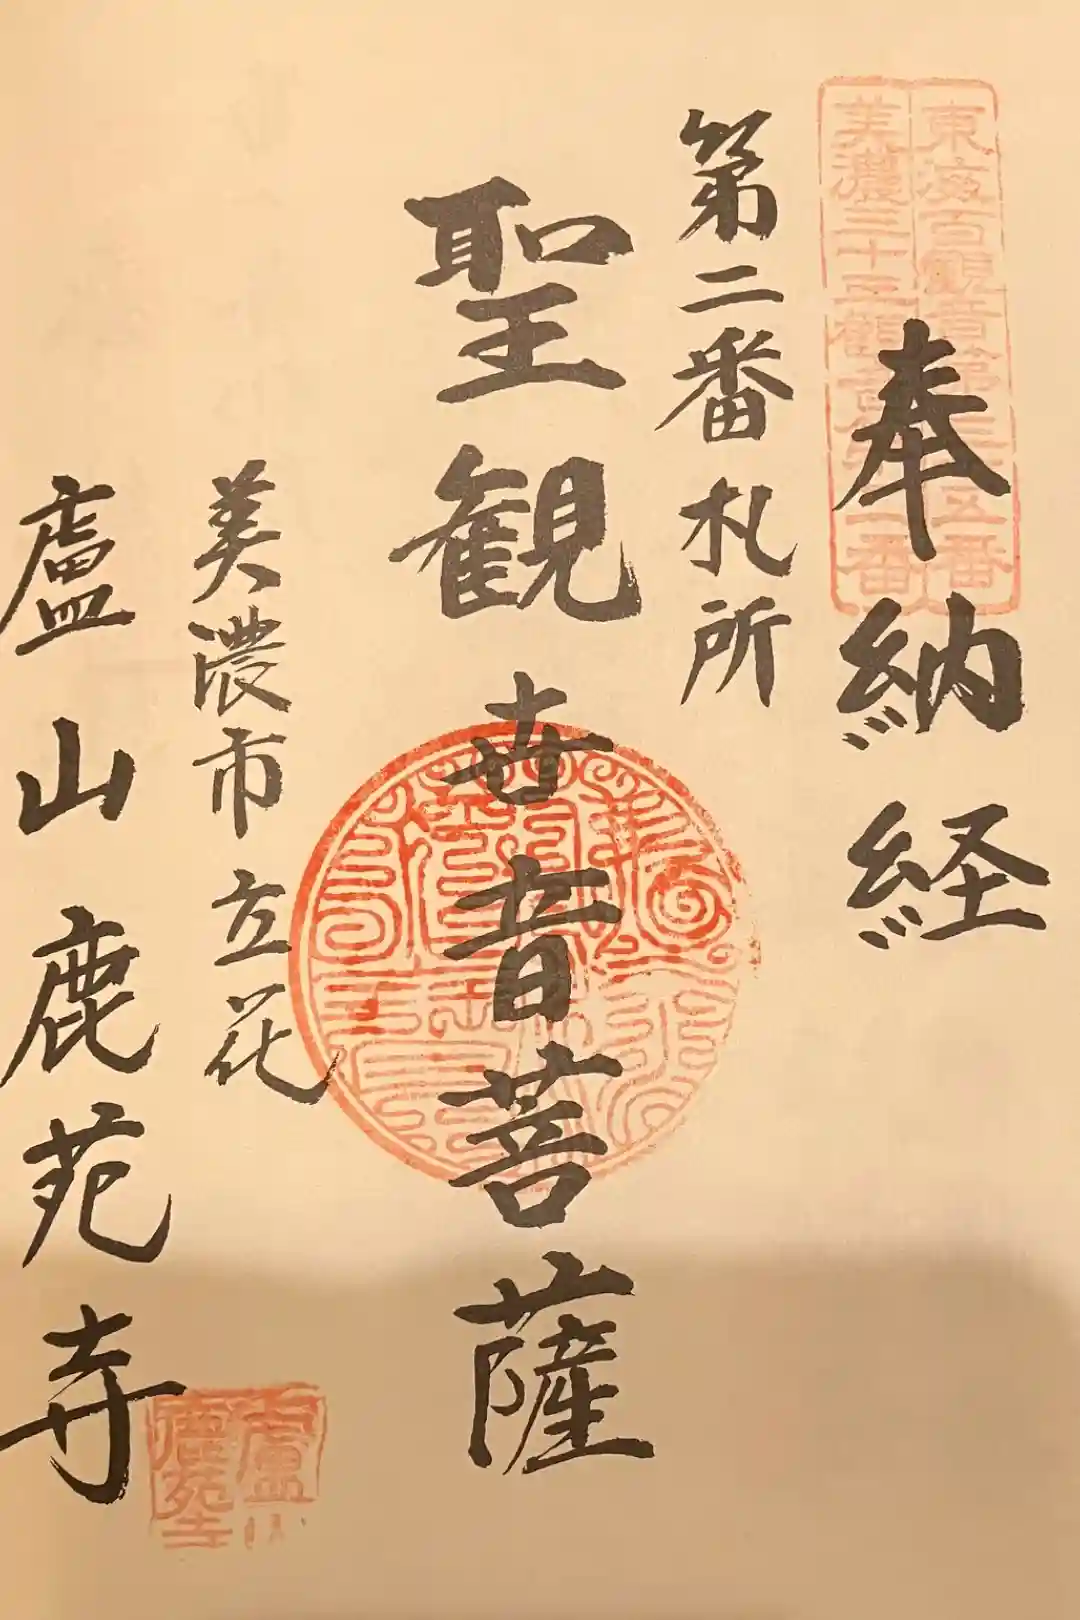 東海百観音第三十五番
美濃三十三観音第二番
奉納経
第二番札所
聖観世音菩薩
美濃市立花
盧山鹿苑寺
盧山
鹿苑寺